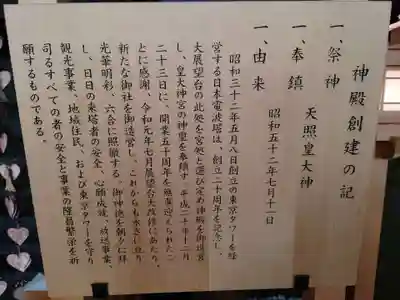 神殿創建の記
一、祭神
天照皇大神
一、奉鎮
昭和五十二年七月十一日
一、由来
昭和三十二年五月八日創立の東京タワーを経
営する日本電波塔は、創立二十周年を記念し、
大展望台の此処を宮処と選び定め神殿を御造営
し、皇大神宮の神璽を奉斎す。平成二十年十二月
二十三日に、開業五十周年を無事迎えられたこ
とに感謝、令和元年七月展望台大改修にあたり、
新たな御社を御造営し、これからもやさしい
光華明彩、六合に照徹する、御神徳を朝夕に拝
し、日日の来塔者の安全、心願成就、放送事業、
観光事業、地域住民、および東京タワーを守り
司るすべての者の安全と事業の隆昌繁栄を祈
願するものである。